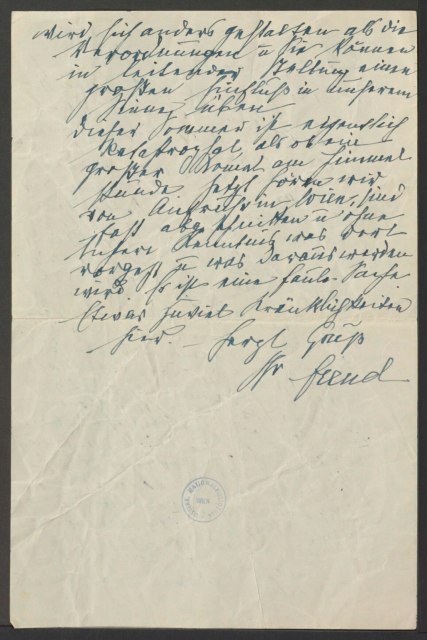 wird sich anders gestalten als die
Verordnungen u Sie können
in leitender Stellung einen
großen Einfluß in unserem
Sinne üben
Dieser Sommer ist eigentlich
katastrophal, als ob ein
großer Komet am Himmel
stünde. Jetzt hören wir
von Aufruhr in Wien, sind
fast abgeschnitten u ohne
unsere Kenntnis was dort
vorgeht u was daraus werden
wird. Es ist eine faule Sache
Etwas zuviel Kränklichkeiten
hier. – Herzl Gruß
Ihr Freud